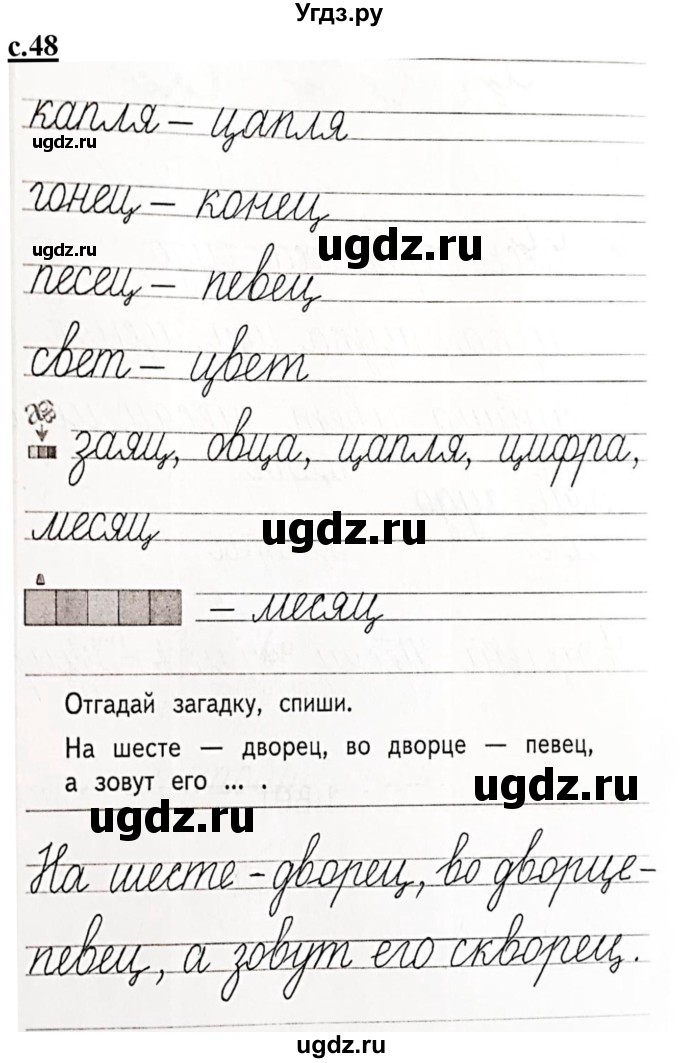 Угдз.ру
с.48
капля – цапля
ugdz.ru
гонец – конец
ugdz.ru
ugdz.ru
песец – певец
свет – цвет
заяц, овца, цапля, цифра,
месяц
ugdz.ru
– месяц
Отгадай загадку, спиши.
На шесте — дворец, во дворце — певец,
ugdz.ru
а зовут его ... .
ugdz.ru
На шесте - дворец, во дворце -
певец, а зовут его скворец.
ugdz.ru